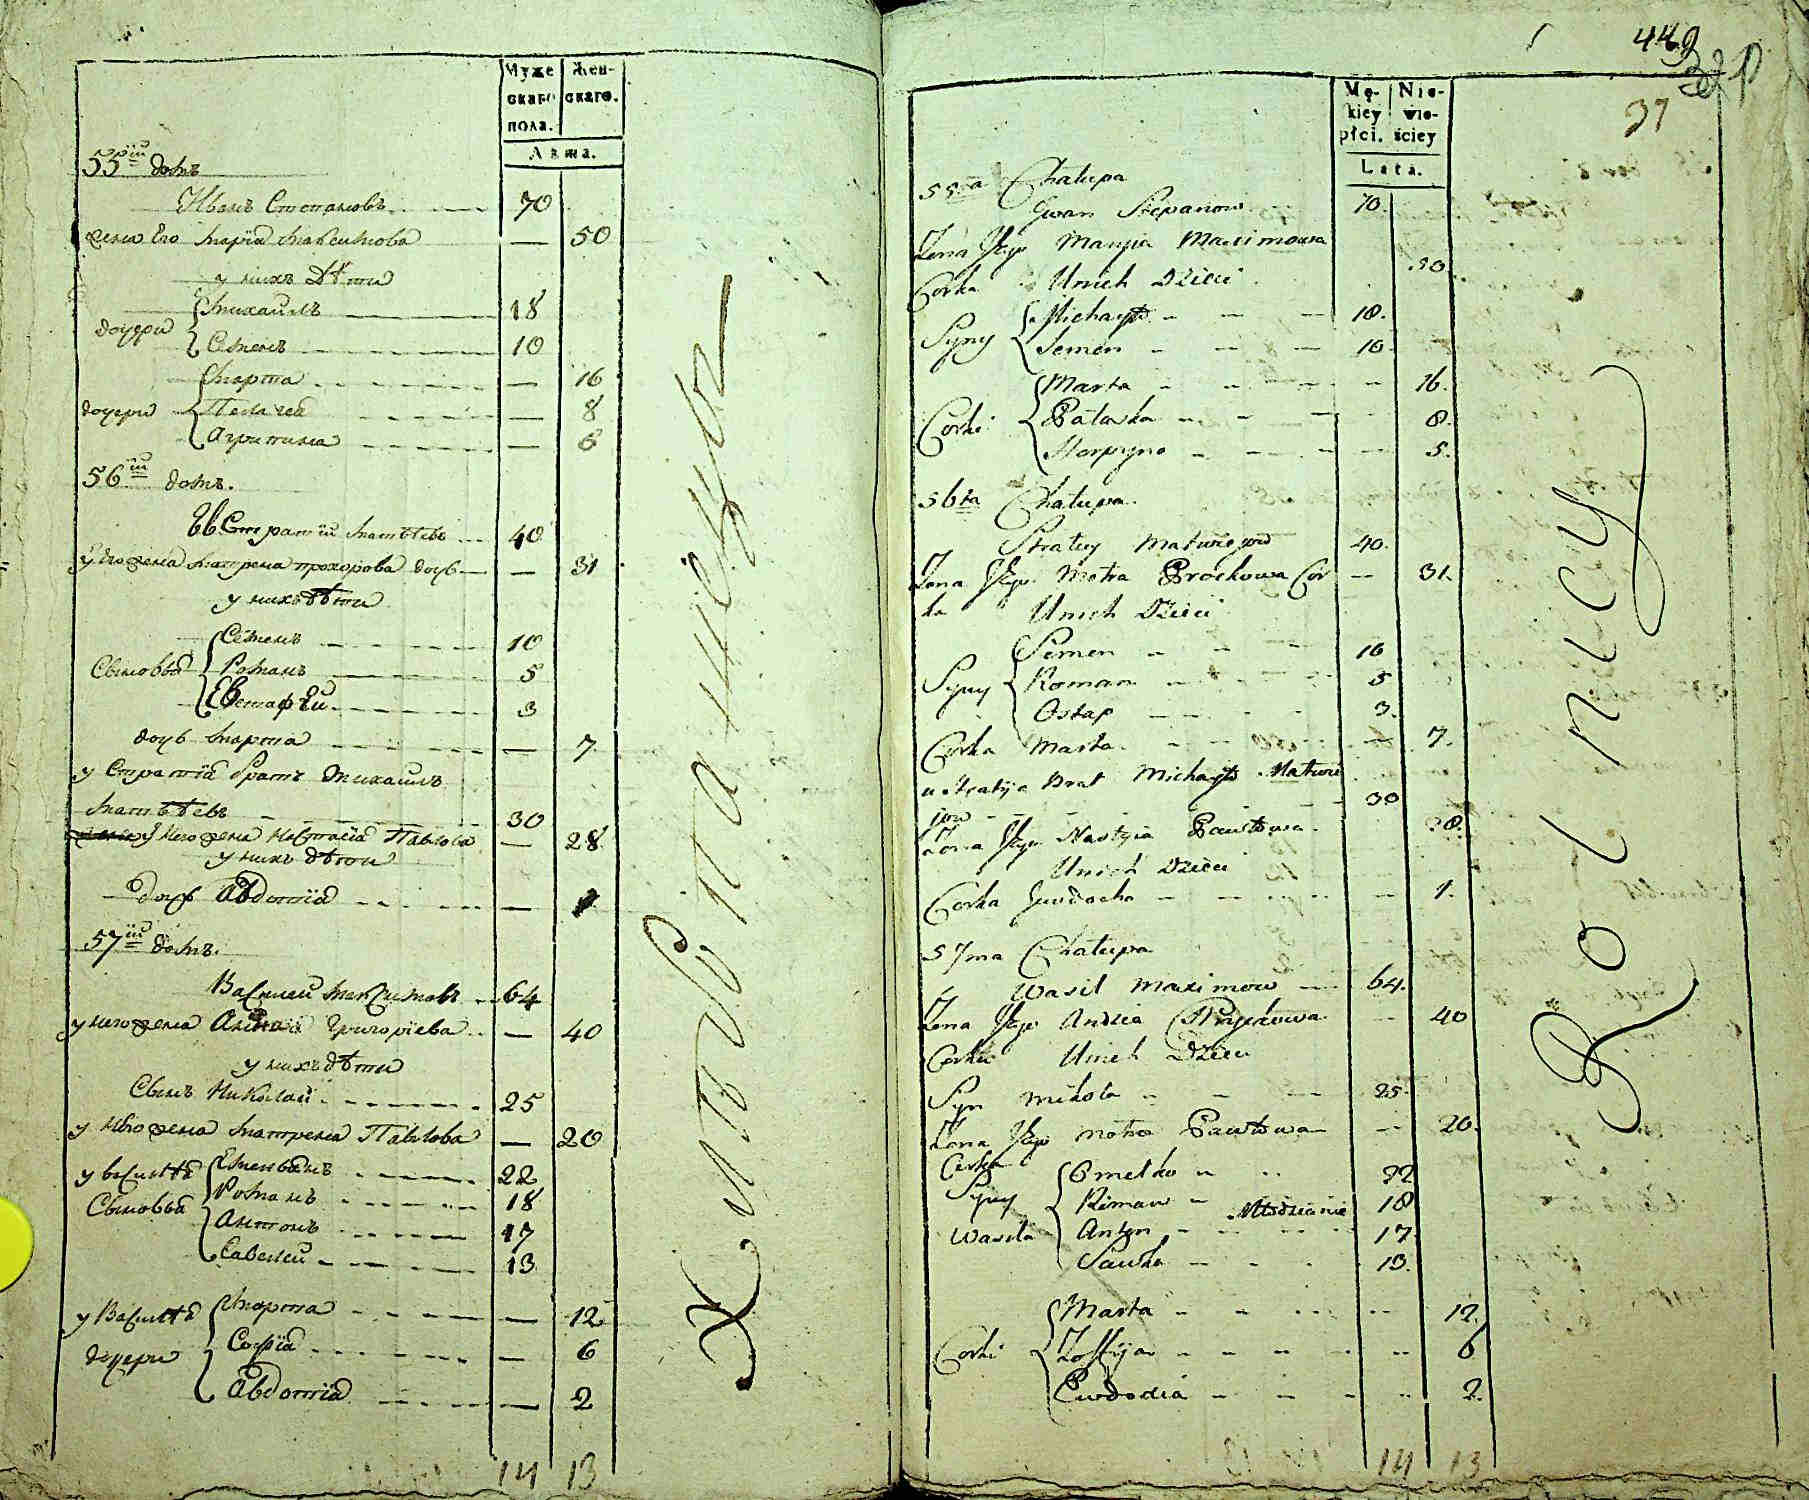 Муже
скаго
пола.
Жен-
скаго.
Лѣта.
55ій домъ
Иванъ Степановъ 70
жена Его Марія Максимова — 50
у нихъ Дѣти
дочери
Михаилъ 18
Семенъ 10
дочери
Марта — 16
Пелагея — 8
Агрипина — 6
56ій домъ.
ЕвСтратій Матвѣевъ 40
у него жена Матрена Прохорова дочь — 31
у нихъ дѣти
Сыновья
Семенъ 10
Романъ 5
Евстафѣй 3
дочь Марта — 7
у Стратія братъ Михаилъ
Матвѣевъ 30
У Него жена Настасія Павлова — 28
у нихъ дѣти
дочь Авдотія — 1
57ій домъ.
Василей Максимовъ 64
у него жена Григоріева — 40
у нихъ дѣти
Сынъ Николай 25
у Него жена Матрена Павлова — 20
у Василія
Сыновья
Емельянъ 22
Романъ 18
Антонъ 17
Савелей 13
у Василія
дочери
Марта — 12
Софія — 6
Авдотія — 2
14 13
Хлѣбопашецъ
449
37
Mę-
kiey
płci.
Nie-
wie-
ściey
Lata.
55.a Chałupa
Jwan Stepanow 70.
Zona Jego Maryia Maximowa
Corka Unich Dzieci 50.
Syny
Michayło 18.
Semen 10.
Corki
Marta — 16.
Palaska 8.
Horpyna — 5.
56ta Chałupa.
Stratiy Matwiejow 40.
Zona Jego Motra Prochowa Cor — 31.
ka Unich Dzieci
Syny
Semen 10
Roman 5
Ostap 3.
Corka Marta. — 7.
u Stratija Brat Michayło Matwie
jow 30
Zona Jego Nastyia Pawłowa. 28.
Unich Dzieci
Corka Jewdocha — 1.
57ma Chałupa
Wasil Maximow 64.
Zona Jego — 40
Corka Unich Dzieci
Syn Mikoła 25.
Zona Jego Motra Pawłowa — 20.
Corka
Syny
Wasila
Omelko 22
Roman 18
Anton 17.
Sawka 13.
Młodzianie
Corki
Marta 12.
Zoffija 6
Ewdodia 2.
14 13
Rolnicy